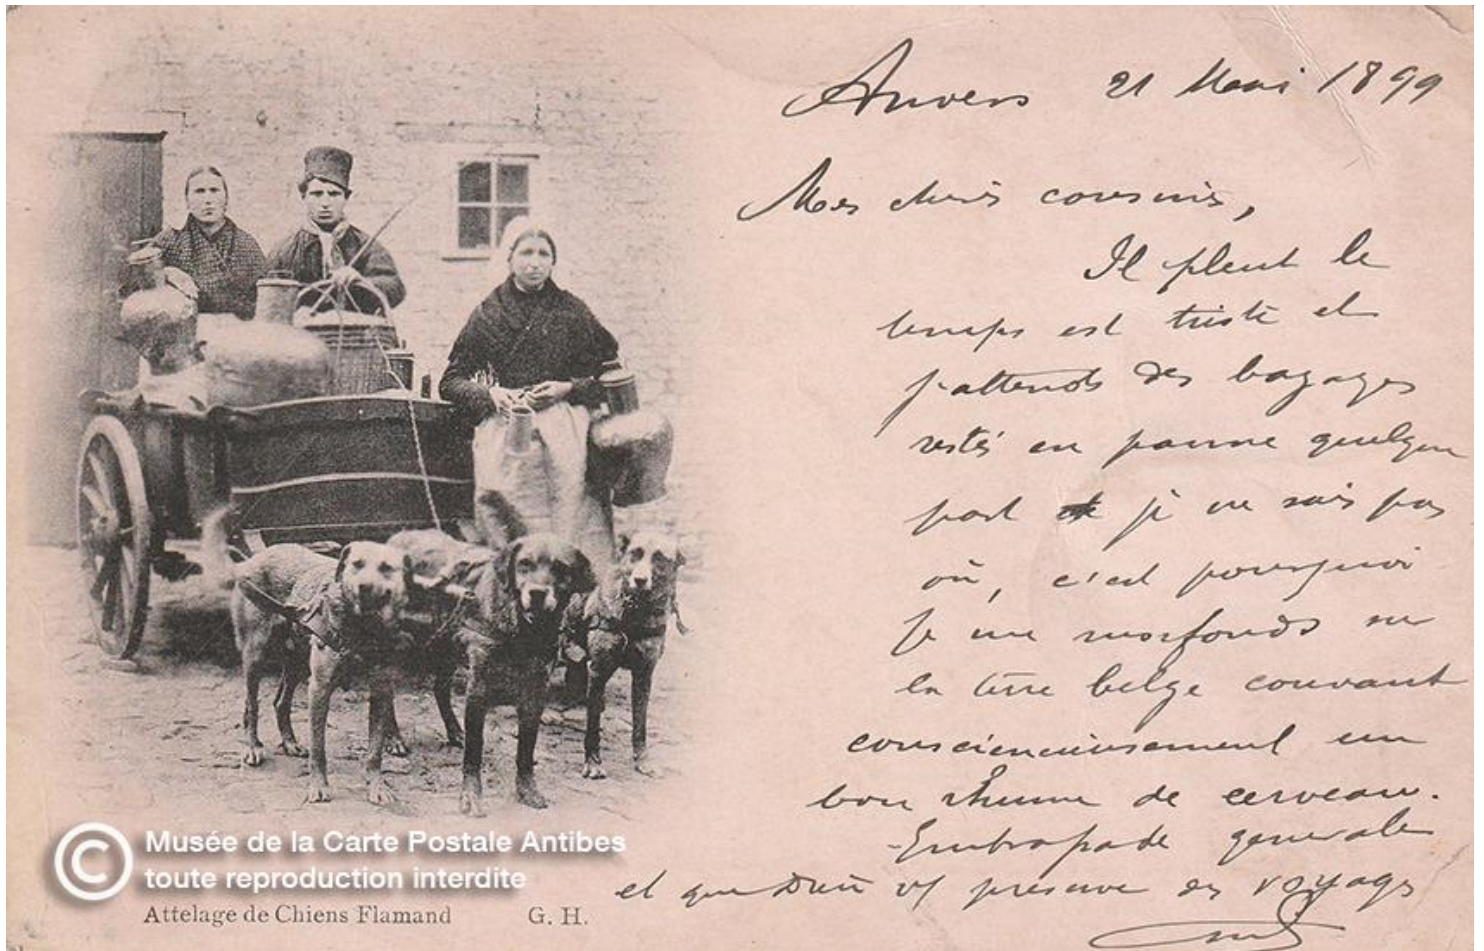 Anvers 21 Mai 1899
Mes chers cousins,
Il pleut le
temps est triste et
j'attends des bagages
restés en panne quelque
part je ne sais pas
où, c'est pourquoi
je me morfonds sur
la terre belge couvant
consciencieusement un
bon rhume de cerveau.
Embrassade générale
et que Dieu vs préserve des voyages
© Musée de la Carte Postale Antibes
toute reproduction interdite
Attelage de Chiens Flamand G. H.